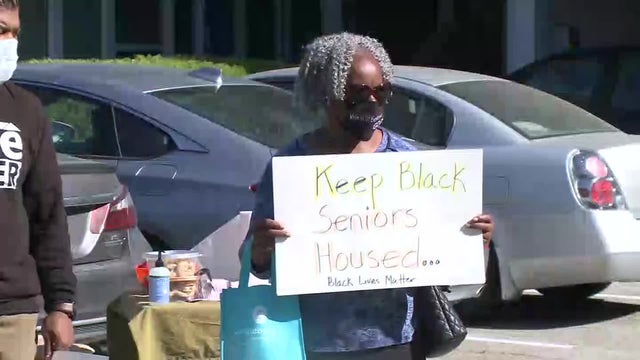 Keep Black
Seniors
Housed...
Black Lives Matter